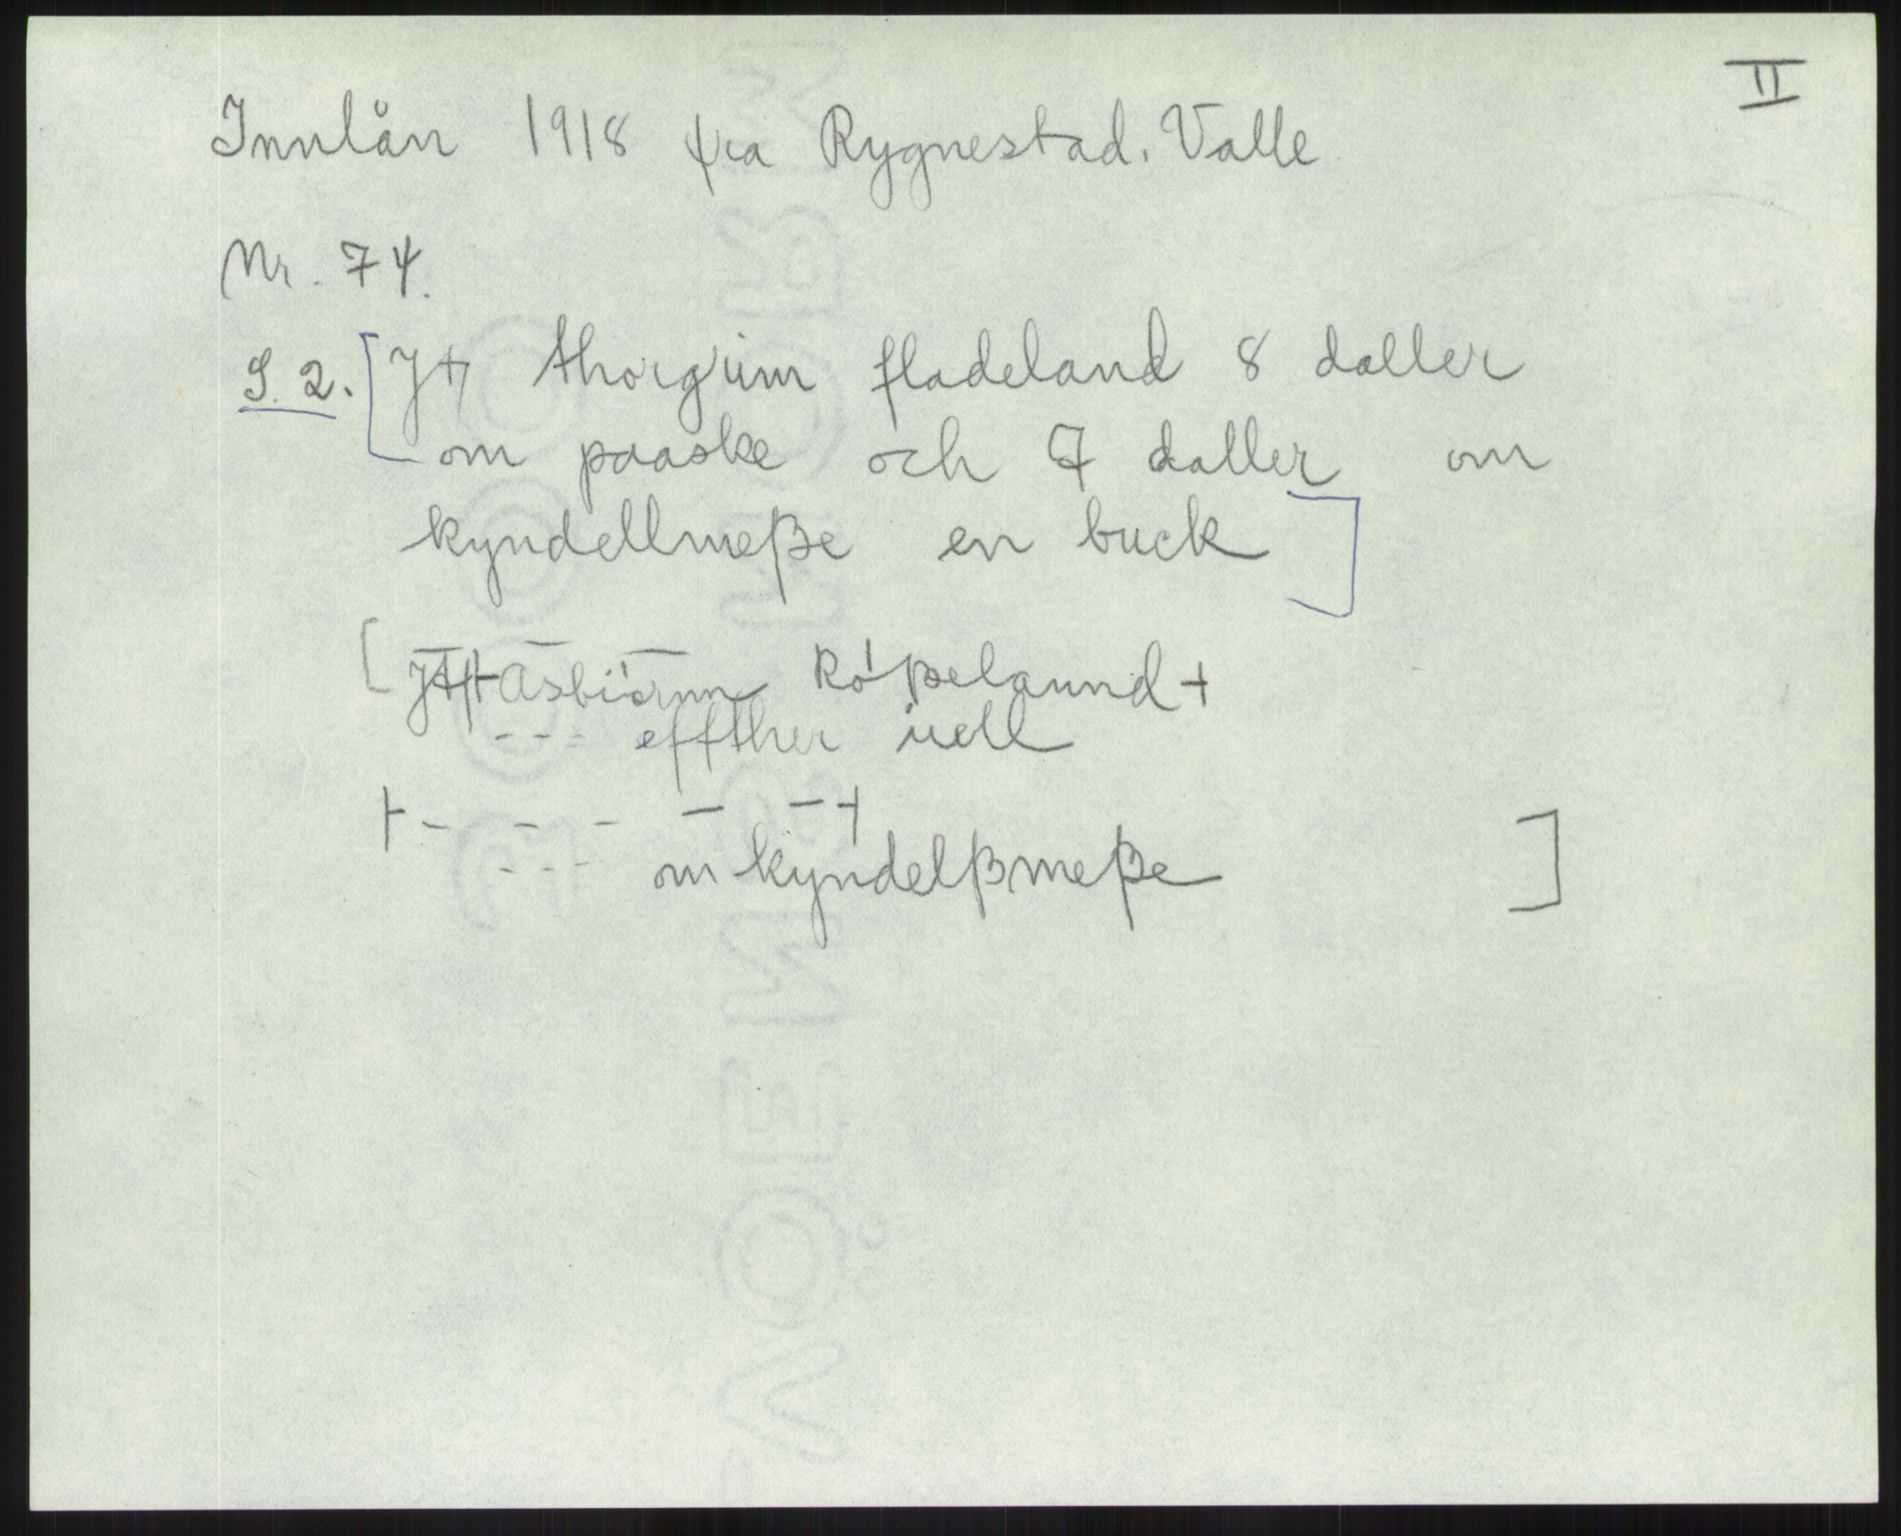 II
Innlån 1918 fra Rygnestad. Valle
Nr. 74.
S. 2. [Jt thorgüm fladeland 8 daller
om paaske och 7 daller om
kyndellmeße en buck]
[Jtt Asbiörnn Rößelaund +
--- effther iuell
+- - - - -+
--- om kyndelßmeße ]